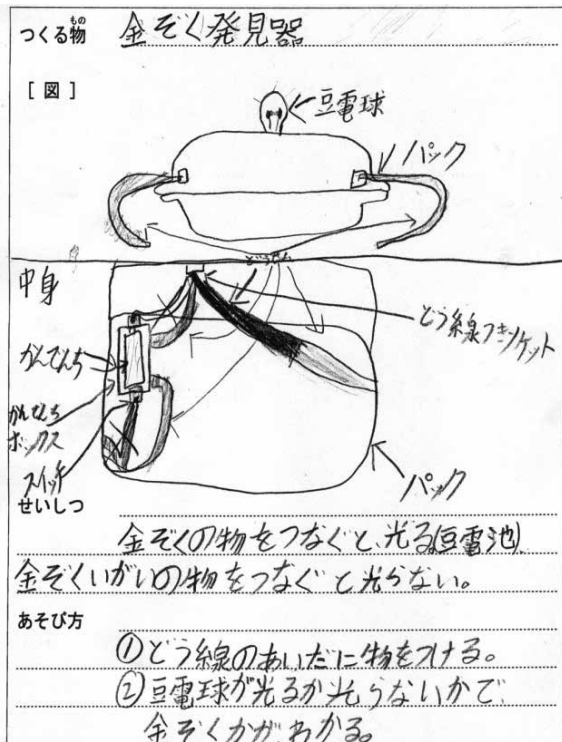 つくる物 金ぞく発見器
もの
[図]
豆電球
パック
どうせん
中身
どう線つきソケット
かんでんち
かんでんち
ボックス
スイッチ
パック
せいしつ
金ぞくの物をつなぐと、光る(豆電池)
金ぞくいがいの物をつなぐと光らない。
あそび方
①どう線のあいだに物をつける。
②豆電球が光るか光らないかで、
金ぞくかが、わかる。